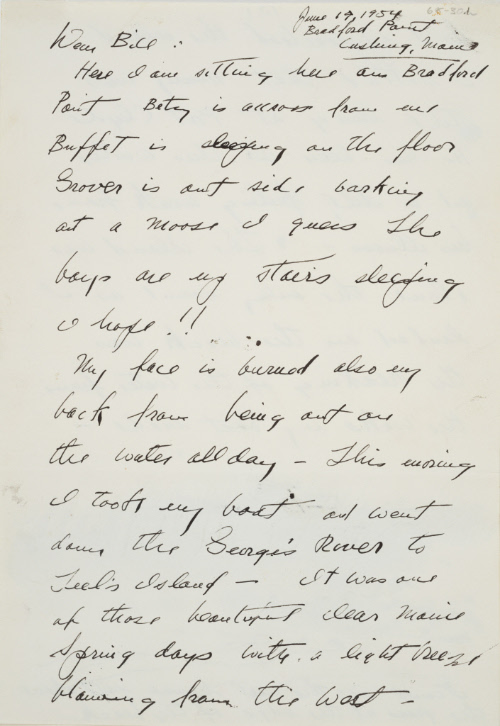 June 17, 1954
Bradford Point
Cushing, Maine
Dear Bill :
Here I am sitting here on Bradford
Point Betsy is accross from me
Buffet is sleeping on the floor
Grover is out side barking
at a moose I guess The
boys are up stairs sleeping
I hope !!
My face is burned also my
back from being out on
the water all day – This morning
I took my boat and went
down the Georges River to
Teel's Island – It was one
of those beautiful clear Maine
Spring days with a light breeze
blowing from the West –